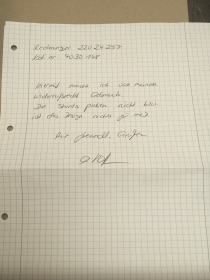 Rechnungsnr. 220 24 257
Kd. nr. 4030 148
Hiermit mache ich von meinem
widerrufsrecht Gebrauch.
Die Shorts passen nicht bzw.
ist das Design nichts für mich.
Mit freundl. Grüßen